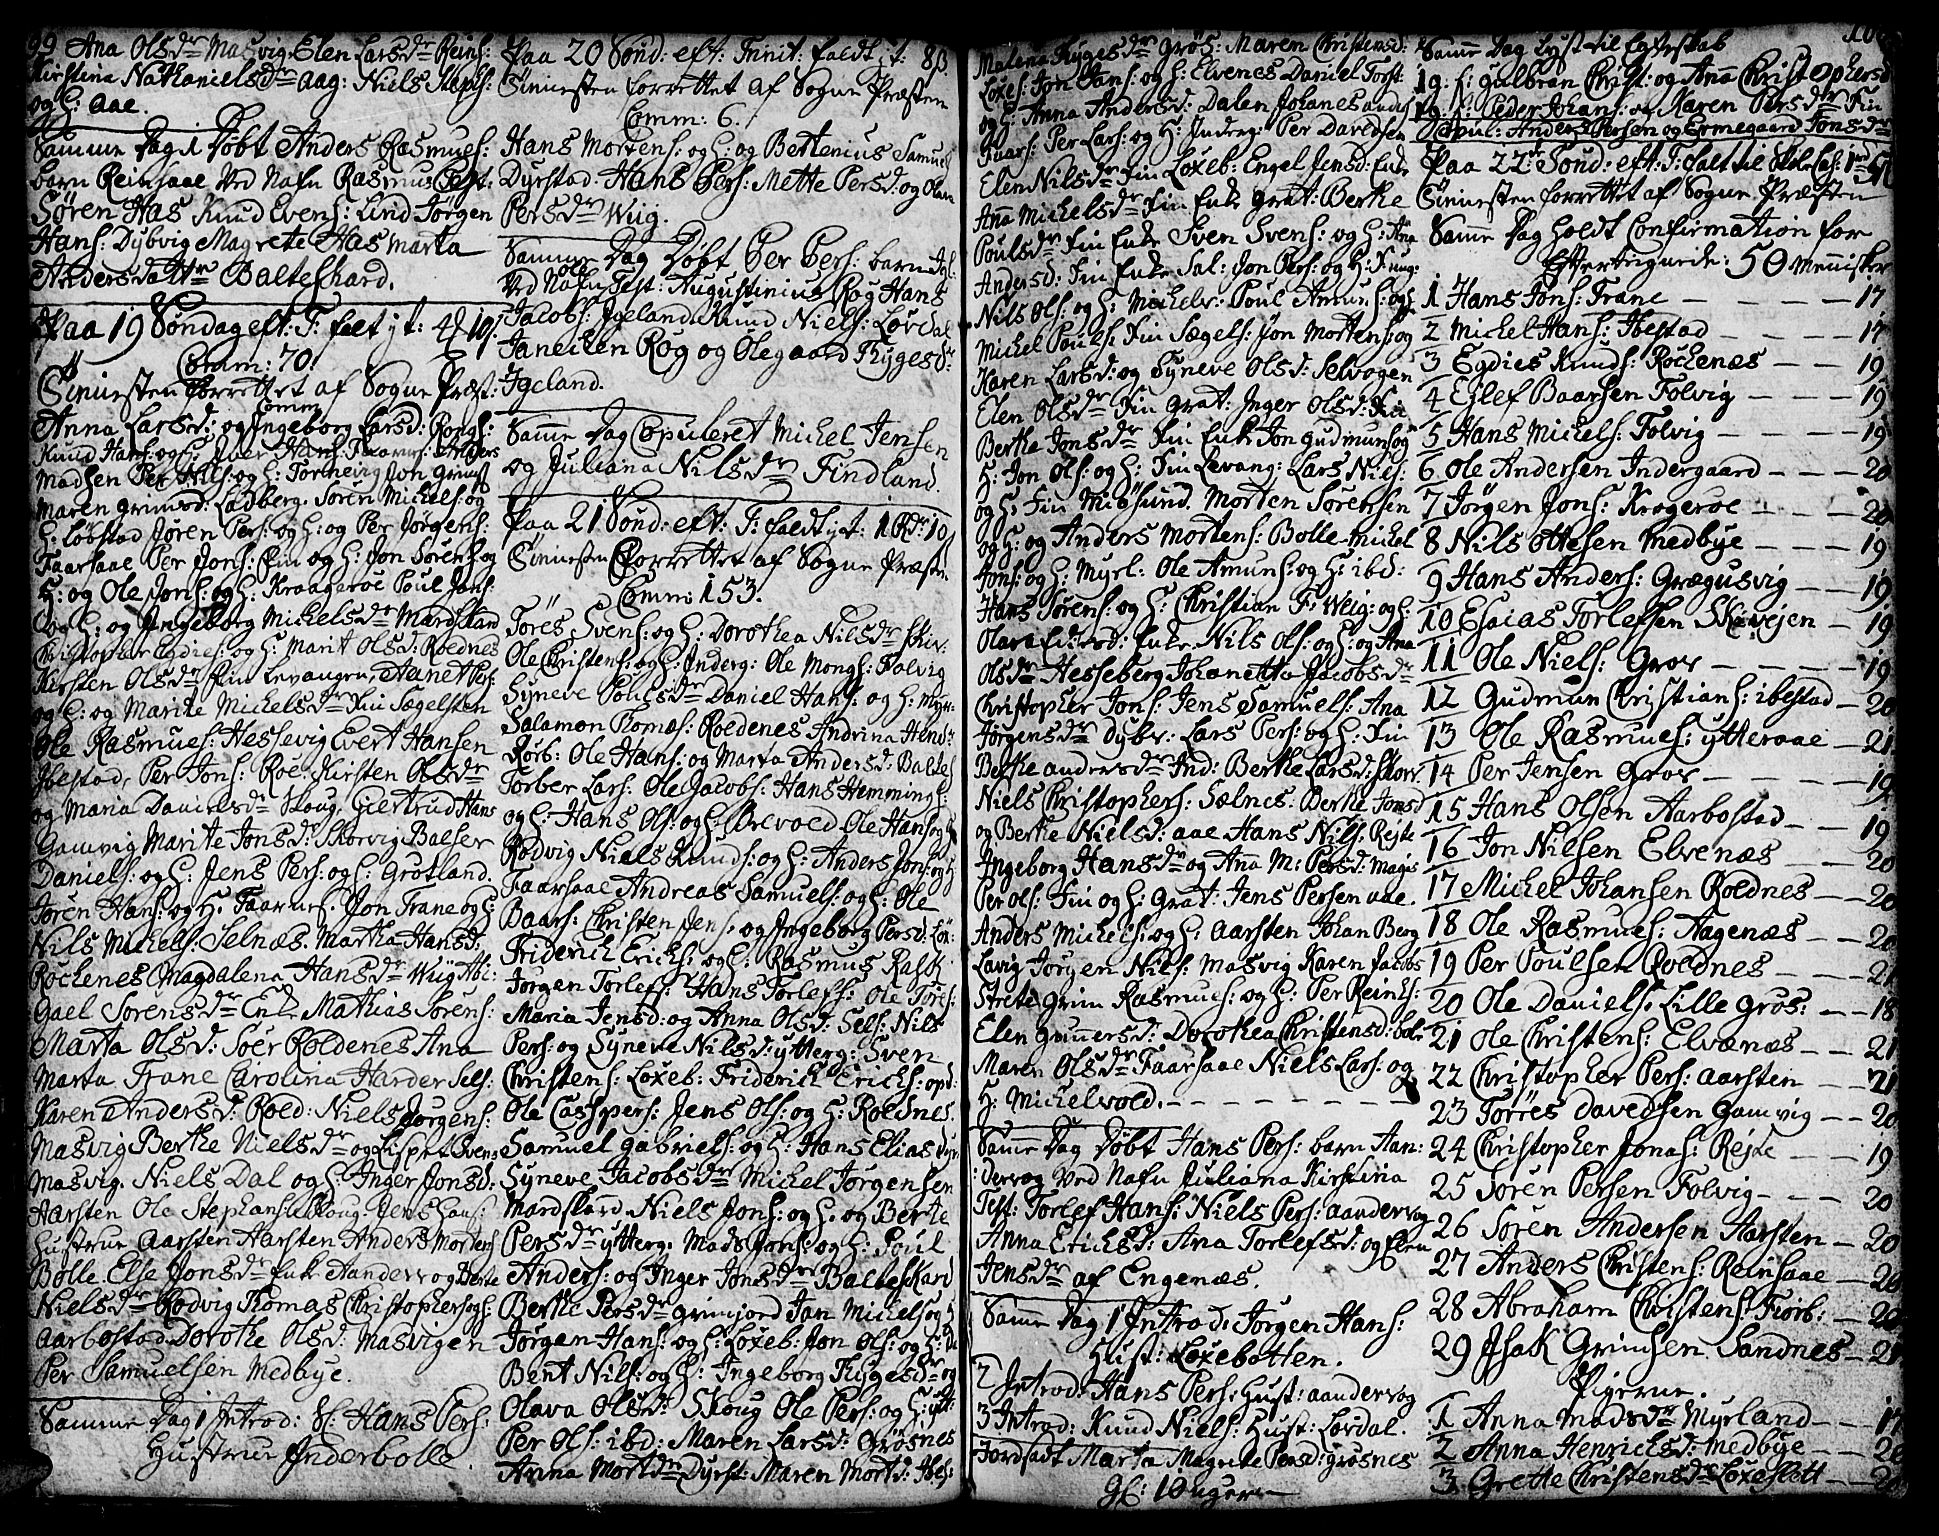 99 Ana Olsdr Masvig. Elen Larsdr Reins:
Kirstina Nathanielsdr Aag: Niels Steph:
og H: Aae.
Samme Dag 1 Døbt Anders Rasmues:
barn Reinsaae Ved Nafn Rasmus Test:
Søren Has Knud Evens: Lind Jørgen
Hans: Dybvig Magrete Has Marta
Andersdatter Balteshard.
Paa 19 Søndag eft: T: falt jt:
Comm: 70.
Tienesten forrettet af Sogne Præst:
Anna Larsd: og Ingeborg Larsd: Rong:
Knud Hans: og H: Iver Hans: Faarnes: Anders
Madsen Per Nils: og H: Tormevig Jon Grims
Maren Grimsd: Ladberg. Søren Michels: og
H: Løbstad Jøren Pers: og H: og Per Jørgens:
Faarsaae Per Jons: Fin og H: Jon Sørens: og
H: og Ole Jons: og H: Kraageroe Poul Jons:
og H: og Ingeborg Michelsdr Mardskan
Christopher Eydies: og H: Marit Olsd: Roldnes
Kirsten Olsdr Fin Levangen, Aanet Pers
og H: og Marite Michelsdr Fin Segelsten
Ole Rasmues: Hessevig Evert Hansen
Ibestad, Per Jons: Roe: Kirsten Olsdr
og Maria Danielsdr Skoug, Giertrud Hans
Gamvig Marite Jonsdr Skorvig Balser
Daniels: og H: Jens Pers: og H: Grotland.
Jøren Hans: og H: Faarnes. Jon Trane og H:
Nils Michels: Selnæs. Martha Hansd:
Rochenes Magdalena Hansdr Wiig Abi:
Gael Sørensdr Enk. Mathias Sørens:
Marta Olsd: Søer Roldenes Ana
Marta Trane Carolina Harder Sels:
Karen Andersd: Rold: Niels Jørgens:
Masvig Berthe Nielsdr og Lisbet Svens
Masvig. Niels Dal og H: Inger Jonsd:
Aarsten Ole Stephans: Skoug Jens Hans:
Hustrue Aarsten Harsten Anders Mortens
Bolle Else Jonsdr Enke Aandervog Berte
Nielsdr Rodvig Thomas Christophers og H:
Aarbostad Dorothe Olsd: Masvigen
Per Samuelsen Medbye.
Samme Dag 1 Introd: Sl: Hans Pers:
Hustrue Inderbolle.
Paa 20 Sønd: eft: Trinit: faldt jt: 8β.
Tienesten forrettet af Sogne Præsten
Comm: 6.
Hans Mortens: og H: og Bertenius Samuel
Dyrstad. Hans Pers: Mette Persd: og Olava
Persdr Wiig.
Samme Dag Døbt Per Pers: barn Igl:
Ved Nafn Ole Test: Augustinius Rog Hans
Jacobs: Igeland. Knud Niels: Løvdal
Janeiken Rog og Olegaard Thygesdr:
Igeland.
Samme Dag Copuleret Michel Jensen
og Juliana Nilsdr Findland.
Paa 21 Sønd: eft: T: faldt jt: 1 Rdr 10β
Tienesten forrettet af Sogne Præsten
Comm: 153.
Tøres Svens: og H: Dorothea Nilsdr Skiv:
Ole Christens: og H: Inderg: Ole Mongs: Folvig
Syneve Poulsdr Daniel Hans: og H: Myr:
Salamon Thomæs: Roldenes Andrina Hendr
Rørb: Ole Hans: og Marta Andersd: Baltes
Torber Lars: Ole Jacobs: Hans Hemmings:
og H: Hans Ols: og H: Brevold Ole Hans: og H:
Rodvig Niels Knuds: og H: Anders Jons: og H:
Faarsaae Andreas Samuels: og H: Ole
Baars: Christen Jens. og Ingeborg Persd: Løx:
Friderich Erichs: og H: Rasmus Rask
Jørgen Torlefs: Hans Torlefs: Ole Tøres:
Maria Jensd: og Anna Olsd: Sels: Nils
Pers: og Syneve Nilsd: ytterg: Sven
Christens: Løxeb: Friderich Erichs: opd:
Ole Caspers: Jens Ols: og H: Roldnes.
Samuel Gabriels: og H: Hans Elias Dyr
Syneve Jacobsdr Michel Jørgensen
Mardskard. Niels Jons: og H. og Berte
Persdr ytterg. Mads Jons: og H: Poul
Anders: og Inger Jonsdr Balteskard
Berthe Persdr Grimjord Jan Michels og H
Jørgen Hans: og H: Løxeb: Jon Ols: og H:
Bent Nils: og H: Ingeborg Thygesdr og
Olava Olsd: Skoug Ole Pers: og H: ytt:
Per Ols: ibd: Maren Larsd: Grøsnes
Anna Mortdr Dyrst: Maren Mortd: Ibes:
Malena Thygesdr Grøs: Maren Christensd:
Løxef: Jon Hans: og H: Elvenes Daniel Torst:
og H: Anna Andersd: Dalen Johanes Anders
Faars: Per Lars: og H: Inderg: Per Davedsen
Elen Nilsdr Fin Løxeb: Engel Jensd: Enke
Ana Michelsdr Fin Enke Grat: Berthe
Poulsdr Fin Enke Sven Svens: og H: Ana
Andersd: Fin Enke Sal: Jon Pers: og H: Fin ung:
Nils Ols: og H: Michelv: Poul Amuns: og H:
Michel Pouls: Fin Sægels: Jon Mortens: og
Karen Larsd: og Syneve Olsd: Selvogen
Elen Olsdr Fin Grat: Inger Olsd: Fin
Berthe Jonsdr Fin Enke Jon Gudmuns: og
H: Jon Ols: og H: Fin Levang: Lars Niels:
og H: Fin Miøsund. Morten Sørensen
og H: og Anders Mortens: Bolle Michel
Jons: og H: Myrl: Ole Amuns: og H: ibd:
Hans Sørens: og H: Christian F: Weig: og H:
Olava Ed:ersd: Enke Nils Ols: og H: og Ana
Olsdr Hesseberg Johanetta Jacobsdr
Christopher Jons: Jens Samuels: Ana
Jørgensdr Dybv: Lars Pers: og H: Fin
Berthe Andersdr Ind: Berthe Larsd: Skorv:
Niels Christophers: Sælnes. Berthe Jonsd
og Berthe Nielsd: Aae Hans Nils: Rejte
Ingeborg Hansdr og Ana M: Persd: Magis
Per Ols: Fin og H: Grat: Jens Persen Aae.
Anders Michels: og H: Aarsten Johan Berg
Lavig Jørgen Nils: Masvig Karen Jacobs
Strete Grim Rasmues: og H: Per Reinks:
Elen Gunnersd: Dorothea Christensd: Sole
Maren Olsdr Faarsaae Niels Lars: og
H: Michelvold.
Samme Dag Døbt Hans Pers: barn Aan:
dervog Ved Nafn Juliana Kirstina
Test: Torlef Hans: Niels Pers: Aandervog
Anna Ericksd: Ana Torlefsd: og Elen
Jensdr af Engenæs.
Samme Dag 1 Introd: Jørgen Hans:
Hust: Løxebotten.
2 Introd: Hans Pers: Hust: Aandervog
3 Introd: Knud Niels: Hust: Lørdal.
Jordsadt Marta Magrete Persd: Grøsnes
Gl: 10 uger
Samme Dag Lyst til Egteskab
19: S: Gulbran Christ: og Ana Christophersd
19: S: Peder Johans: og Karen Persdr Fin
Copul: Anders Persen og Ermegaard Jonsdr
Paa 22de Sønd: eft: T: falt til Skole Cas:
Tienesten forrettet af Sogne Præsten
Samme Dag Holdt Confirmation for
Eftertegnede: 50 Mennisker
1 Hans Jons: Trane — 17
2 Michel Hans: Ibestad — 17
3 Egdies Knuds: Rochenæs — 19
4 Ejlef Baarsen Folvig — 19
5 Hans Michels: Folvig — 19
6 Ole Andersen Indergaard — 20
7 Jørgen Jons: Krogeroe — 20
8 Nils Ottesen Medbye — 19
9 Hans Anders: Grægusvig — 19
10 Esaias Torlefsen Skivejen — 19
11 Ole Niels: Grov — 19
12 Gudmun Christians: Ibestad — 20
13 Ole Rasmues: ytteraae — 21
14 Per Jensen Grov — 19
15 Hans Olsen Aarbostad — 19
16 Jon Nilsen Elvenæs — 20
17 Michel Johansen Roldnes — 20
18 Ole Rasmues: Aagenæs — 20
19 Per Poulsen Roldnes — 21
20 Ole Daniels: Lille Grøs: — 18
21 Ole Christens: Elvænæs — 21
22 Christopher Pers: Aarsten — 21
23 Tørres Davedsen Gamvig — 20
24 Christopher Jonas: Rejte — 19
25 Søren Persen Folvig — 20
26 Søren Andersen Aarsten — 20
27 Anders Christens: Reinsaae — 20
28 Abraham Christens: Fiørb: — 20
29 Isak Grimsen Sandnes — 21
Pigerne.
1 Anna Madsdr Myrland — 17
2 Anna Henricksd: Medbye — 20
3 Grette Christensdr Løxeslett — 20